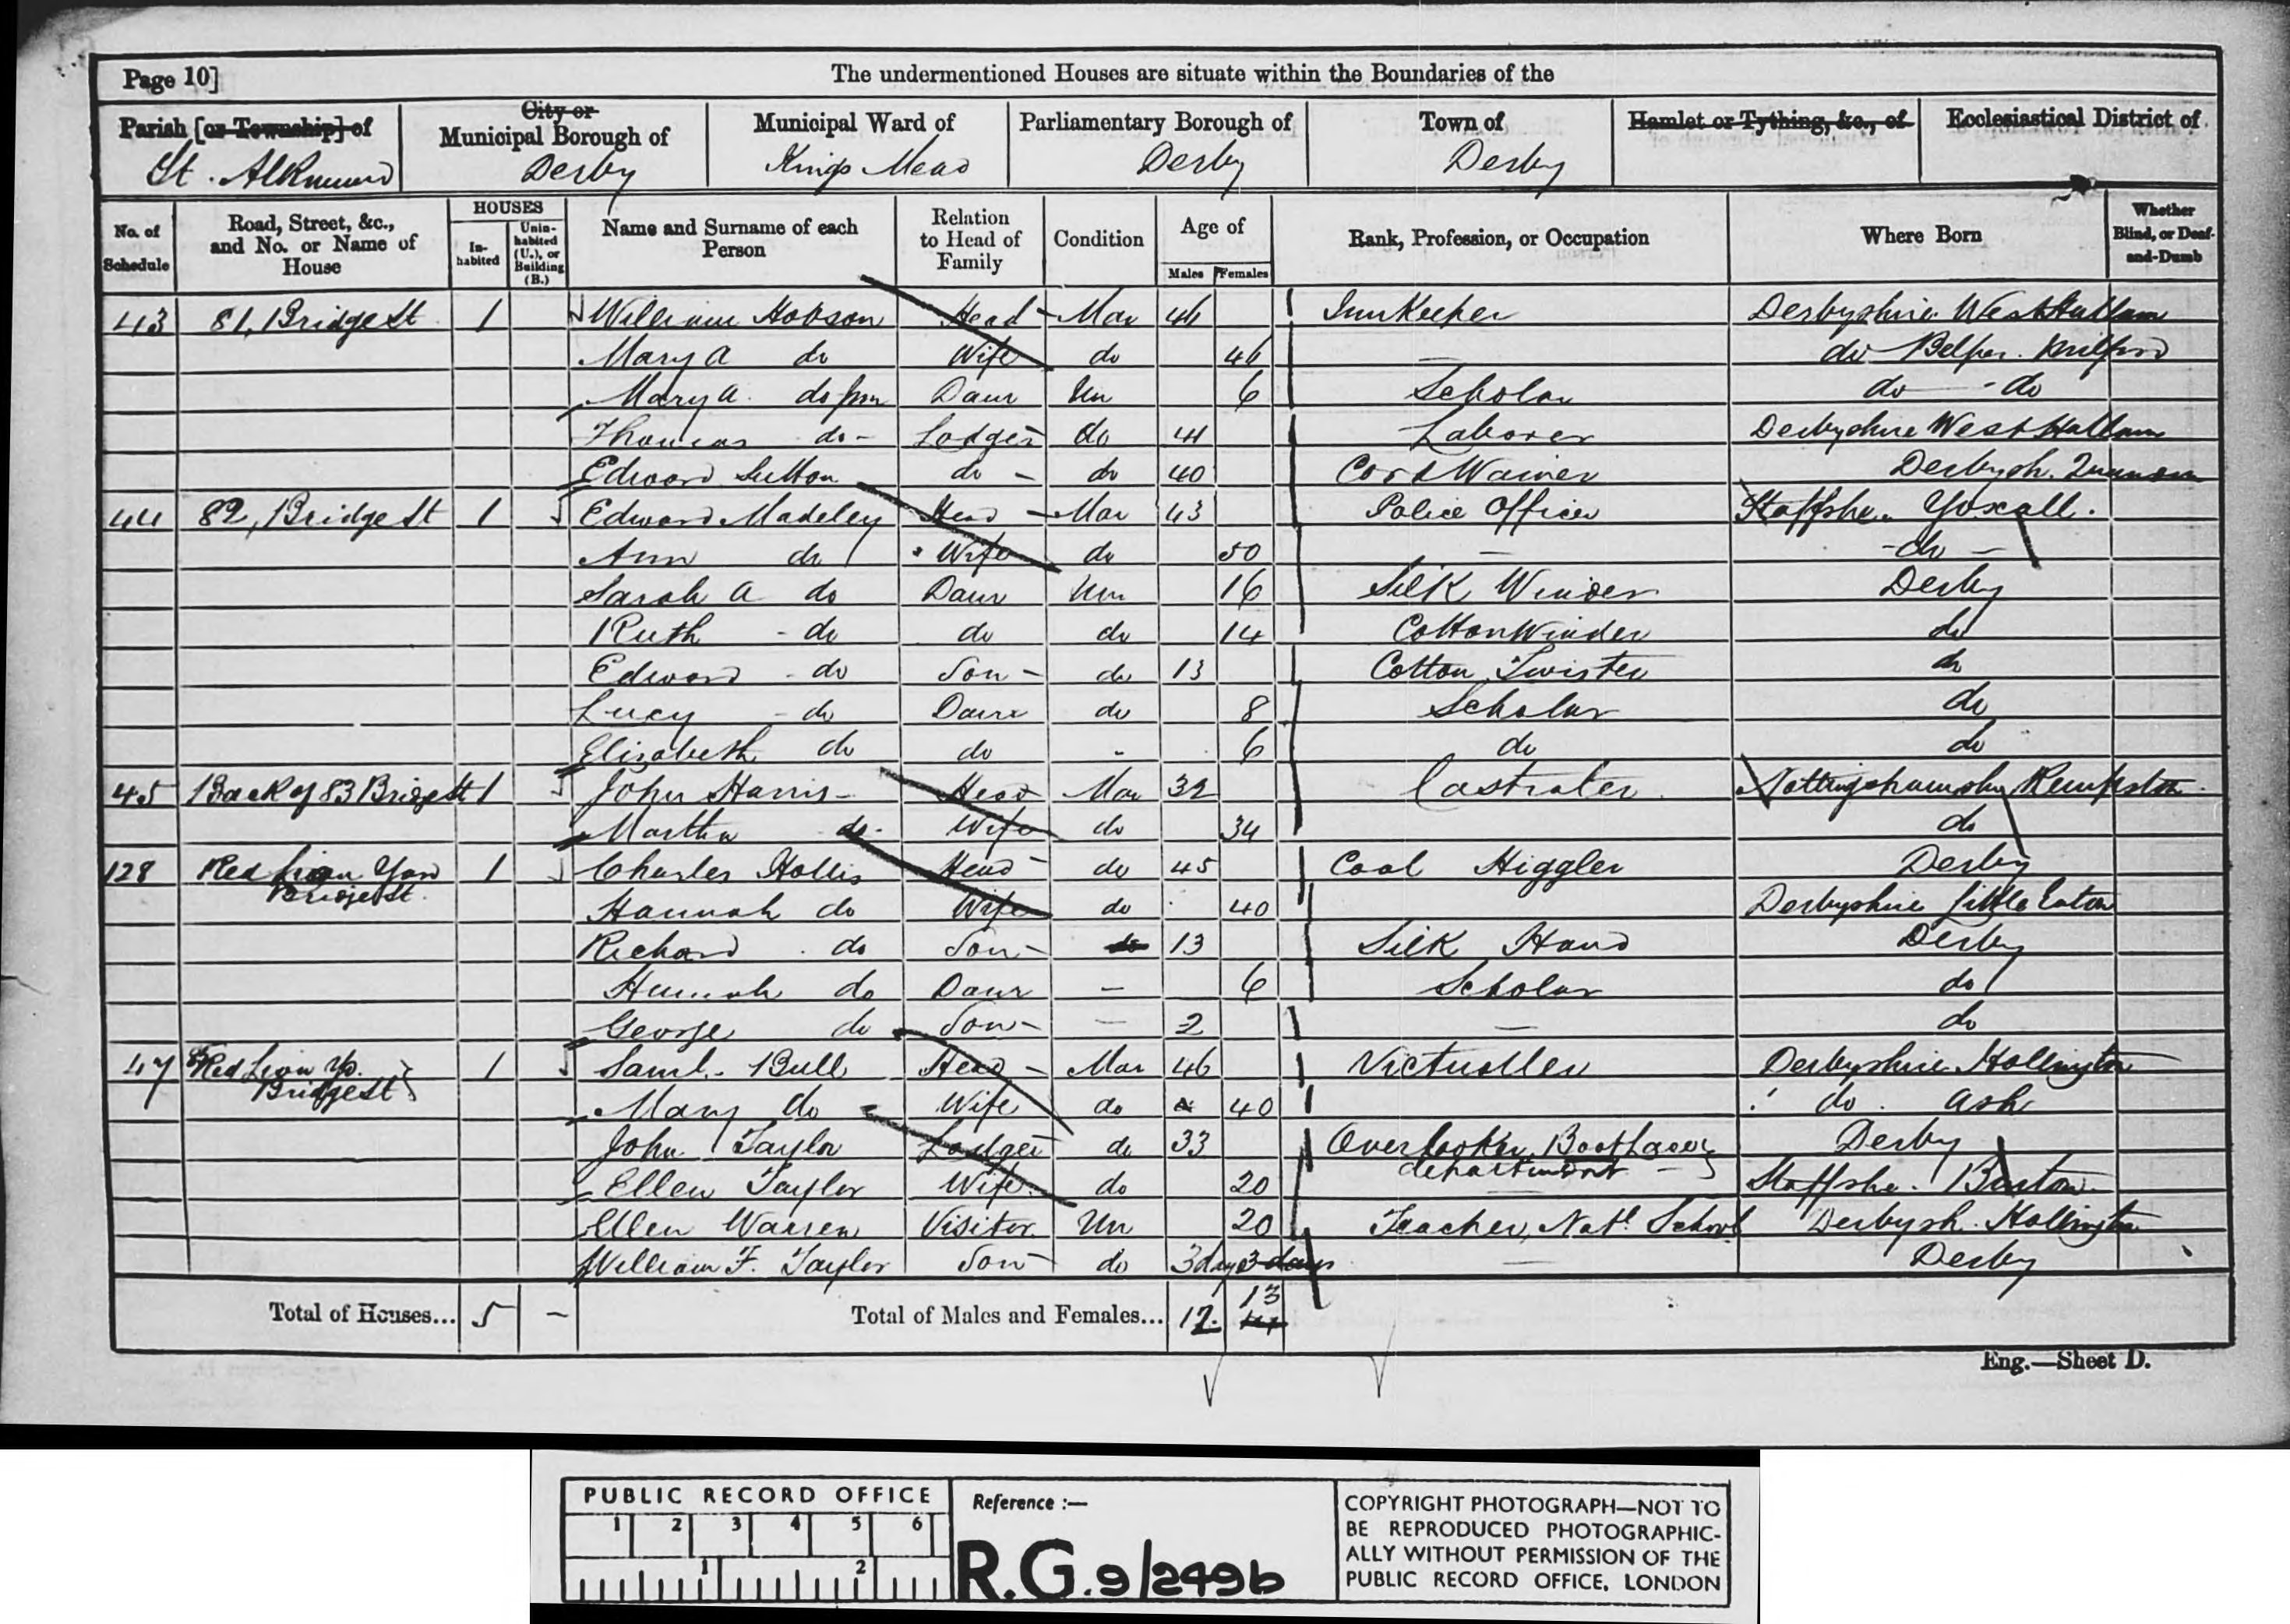 Page 10]
The undermentioned Houses are situate within the Boundaries of the
Parish [or Township] of
St. Alkmund
City or Municipal Borough of
Derby
Municipal Ward of
Kings Mead
Parliamentary Borough of
Derby
Town of
Derby
Hamlet or Tything, &c., of
Ecclesiastical District of
No. of Schedule
Road, Street, &c., and No. or Name of House
HOUSES
In-habited
Unin-habited (U.), or Building (B.)
Name and Surname of each Person
Relation to Head of Family
Condition
Age of
Males Females
Rank, Profession, or Occupation
Where Born
Whether Blind, or Deaf-and-Dumb
43 81, Bridge St 1 William Hobson Head Mar 46 Innkeeper Derbyshire West Hallam
Mary A do Wife do 46 — do Belper Milford
Mary A. do jun Daur Un 6 Scholar do - do
Thomas do - Lodger do 41 Laborer Derbyshire West Hallam
Edward Sutton do - do 40 Cordwainer Derbysh.
44 82, Bridge St 1 Edward Madeley Head - Mar 43 Police Officer Staffshe. Yoxall.
Ann do Wife do 50 — - do -
Sarah A do Daur Un 16 Silk Winder Derby
Ruth - do do do 14 Cotton Winder do
Edward - do Son - do 13 Cotton Twister do
Lucy - do Daur do 8 Scholar do
Elizabeth do do - 6 do do
45 Back of 83 Bridge St 1 John Harris - Head Mar 32 Castrater Kempston
Martha do - Wife do 34 do
128 Red Lion Yard 1 Charles Hollis Head do 45 Coal Higgler Derby
Bridge St.
Hannah do Wife do 40 Derbyshire Little Eaton
Richard do Son - do 13 Silk Hand Derby
Hannah do Daur — 6 Scholar do
George do Son - — 2 — do
47 Red Lion 1 Saml. Bull Head - Mar 46 Victualler Derbyshire Hollington
Bridge St
Mary do Wife do 40 do Ash
John Taylor Lodger do 33 Overlooker, Derby
department
Ellen Taylor Wife do 20 — Staffshe. Burton
Ellen Warren Visitor Un 20 Teacher, Natl. School Derbysh. Hollington
William F. Taylor Son - do 3 days 3 days — Derby
Total of Houses... 5 —
Total of Males and Females... 12. 13
Eng.—Sheet D.
PUBLIC RECORD OFFICE
1 2 3 4 5 6
1 2
Reference :—
R.G. 9/2496
COPYRIGHT PHOTOGRAPH—NOT TO
BE REPRODUCED PHOTOGRAPHIC-
ALLY WITHOUT PERMISSION OF THE
PUBLIC RECORD OFFICE, LONDON